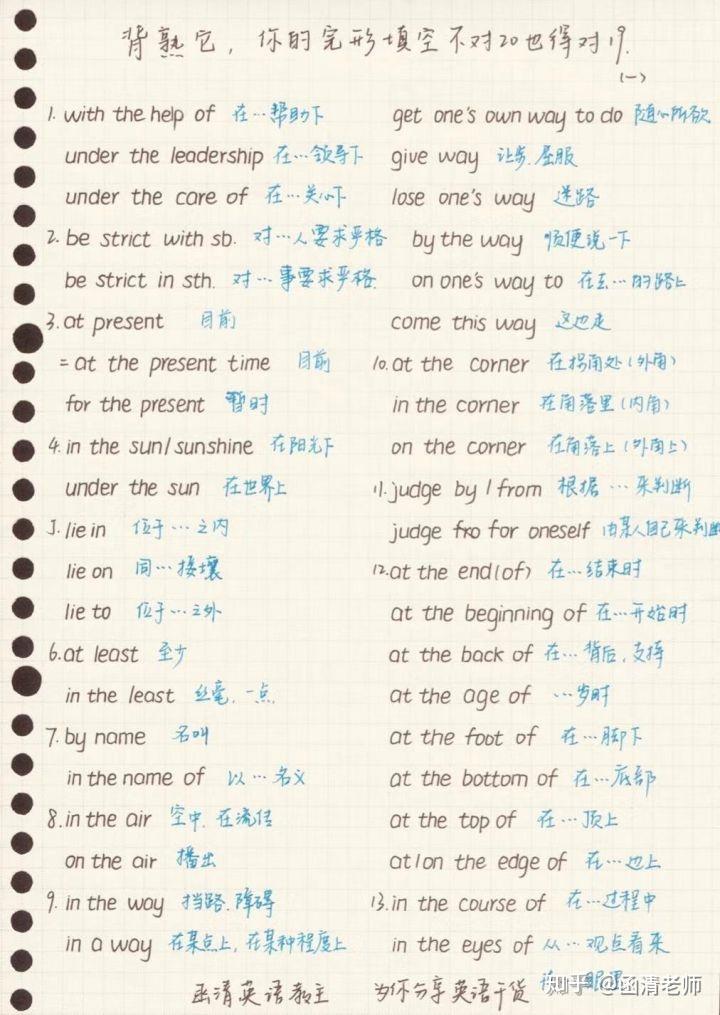 背熟它，你的完形填空不对20也得对19.
(一)
1. with the help of 在…帮助下
under the leadership 在…领导下
under the care of 在…关心下
2. be strict with sb. 对…人要求严格
be strict in sth. 对…事要求严格
3. at present 目前
= at the present time 目前
for the present 暂时
4. in the sun/sunshine 在阳光下
under the sun 在世界上
5. lie in 位于…之内
lie on 同…接壤
lie to 位于…之外
6. at least 至少
in the least 丝毫、一点
7. by name 名叫
in the name of 以…名义
8. in the air 空中、在流传
on the air 播出
9. in the way 挡路、障碍
in a way 在某点上，在某种程度上
get one's own way to do 随心所欲
give way 让步、屈服
lose one's way 迷路
by the way 顺便说一下
on one's way to 在去…的路上
come this way 这边走
10. at the corner 在拐角处(外角)
in the corner 在角落里(内角)
on the corner 在角落上(外角上)
11. judge by / from 根据…来判断
judge fro for oneself 由某人自己来判断
12. at the end (of) 在…结束时
at the beginning of 在…开始时
at the back of 在…背后、支持
at the age of …岁时
at the foot of 在…脚下
at the bottom of 在…底部
at the top of 在…顶上
at/on the edge of 在…边上
13. in the course of 在…过程中
in the eyes of 从…观点看来
函清英语教主 为你分享英语干货
知乎 @函清老师